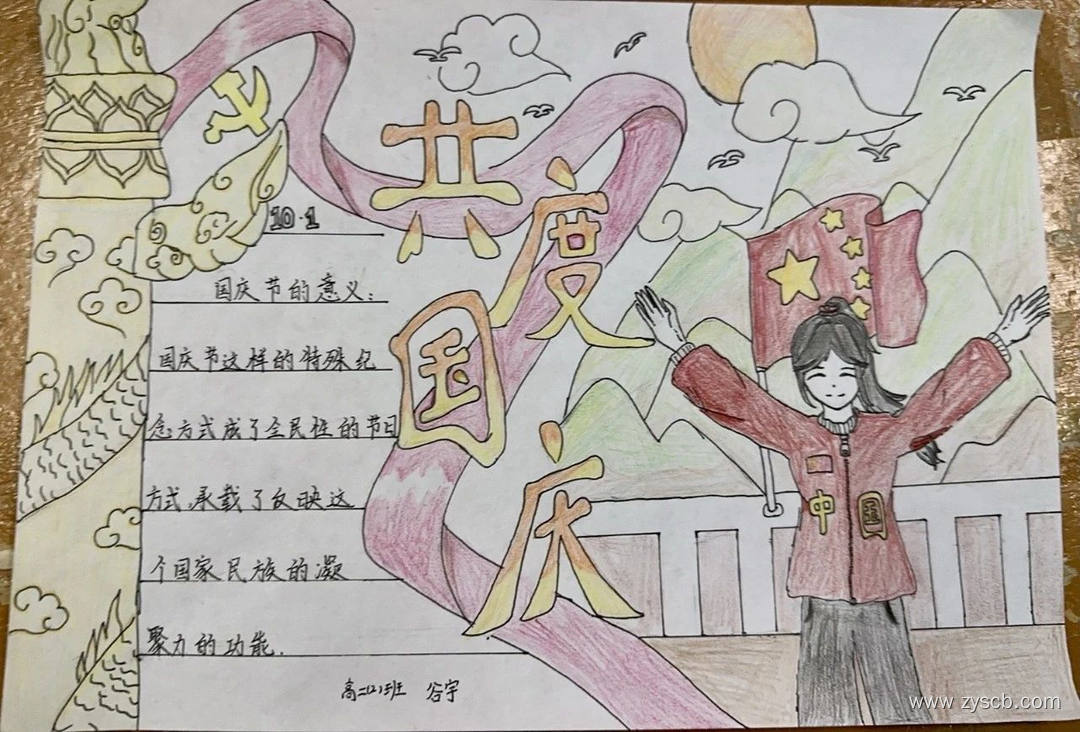 共度
国庆
10·1
国庆节的意义:
国庆节这样的特殊纪
念方式成了全民性的节日
方式,承载了反映这
个国家民族的凝
聚力的功能.
高二(2)班 谷宇
中国
www.zyscb.com